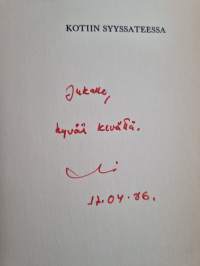 KOTIIN SYYSSATEESSA
Jukalle,
hyvää kevättä.
17.04.86.